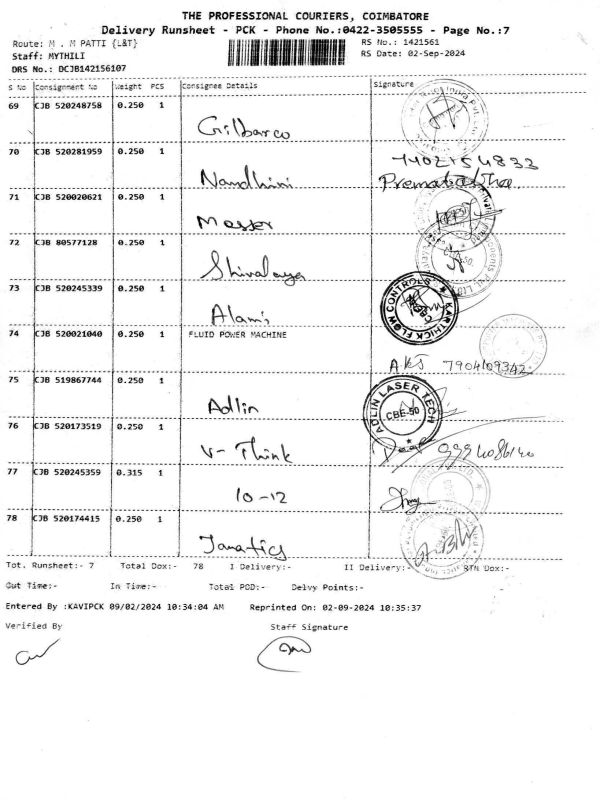 THE PROFESSIONAL COURIERS, COIMBATORE
Delivery Runsheet - PCK - Phone No.:0422-3505555 - Page No.:7
Route: M . M PATTI {L&T}
RS No.: 1421561
Staff: MYTHILI
RS Date: 02-Sep-2024
DRS No.: DCJB142156107
S No Consignment No Weight PCS Consignee Details Signature
69 CJB 520248758 0.250 1
Gilbarco
70 CJB 520281959 0.250 1
7402154833
Nandhini
71 CJB 520020621 0.250 1
Messer
72 CJB 80577128 0.250 1
Shivalaya
73 CJB 520245339 0.250 1
KARTHICK FLOW CONTROLS
Alami
74 CJB 520021040 0.250 1 FLUID POWER MACHINE
AKS 7904109342
75 CJB 519867744 0.250 1
ADLIN LASER TECH
CBE-50
Adlin
76 CJB 520173519 0.250 1
V- Think
77 CJB 520245359 0.315 1
10-12
78 CJB 520174415 0.250 1
Janatics
Tot. Runsheet:- 7 Total Dox:- 78 I Delivery:- II Delivery:- RTN Dox:-
Out Time:- In Time:- Total POD:- Delvy Points:-
Entered By :KAVIPCK 09/02/2024 10:34:04 AM Reprinted On: 02-09-2024 10:35:37
Verified By Staff Signature